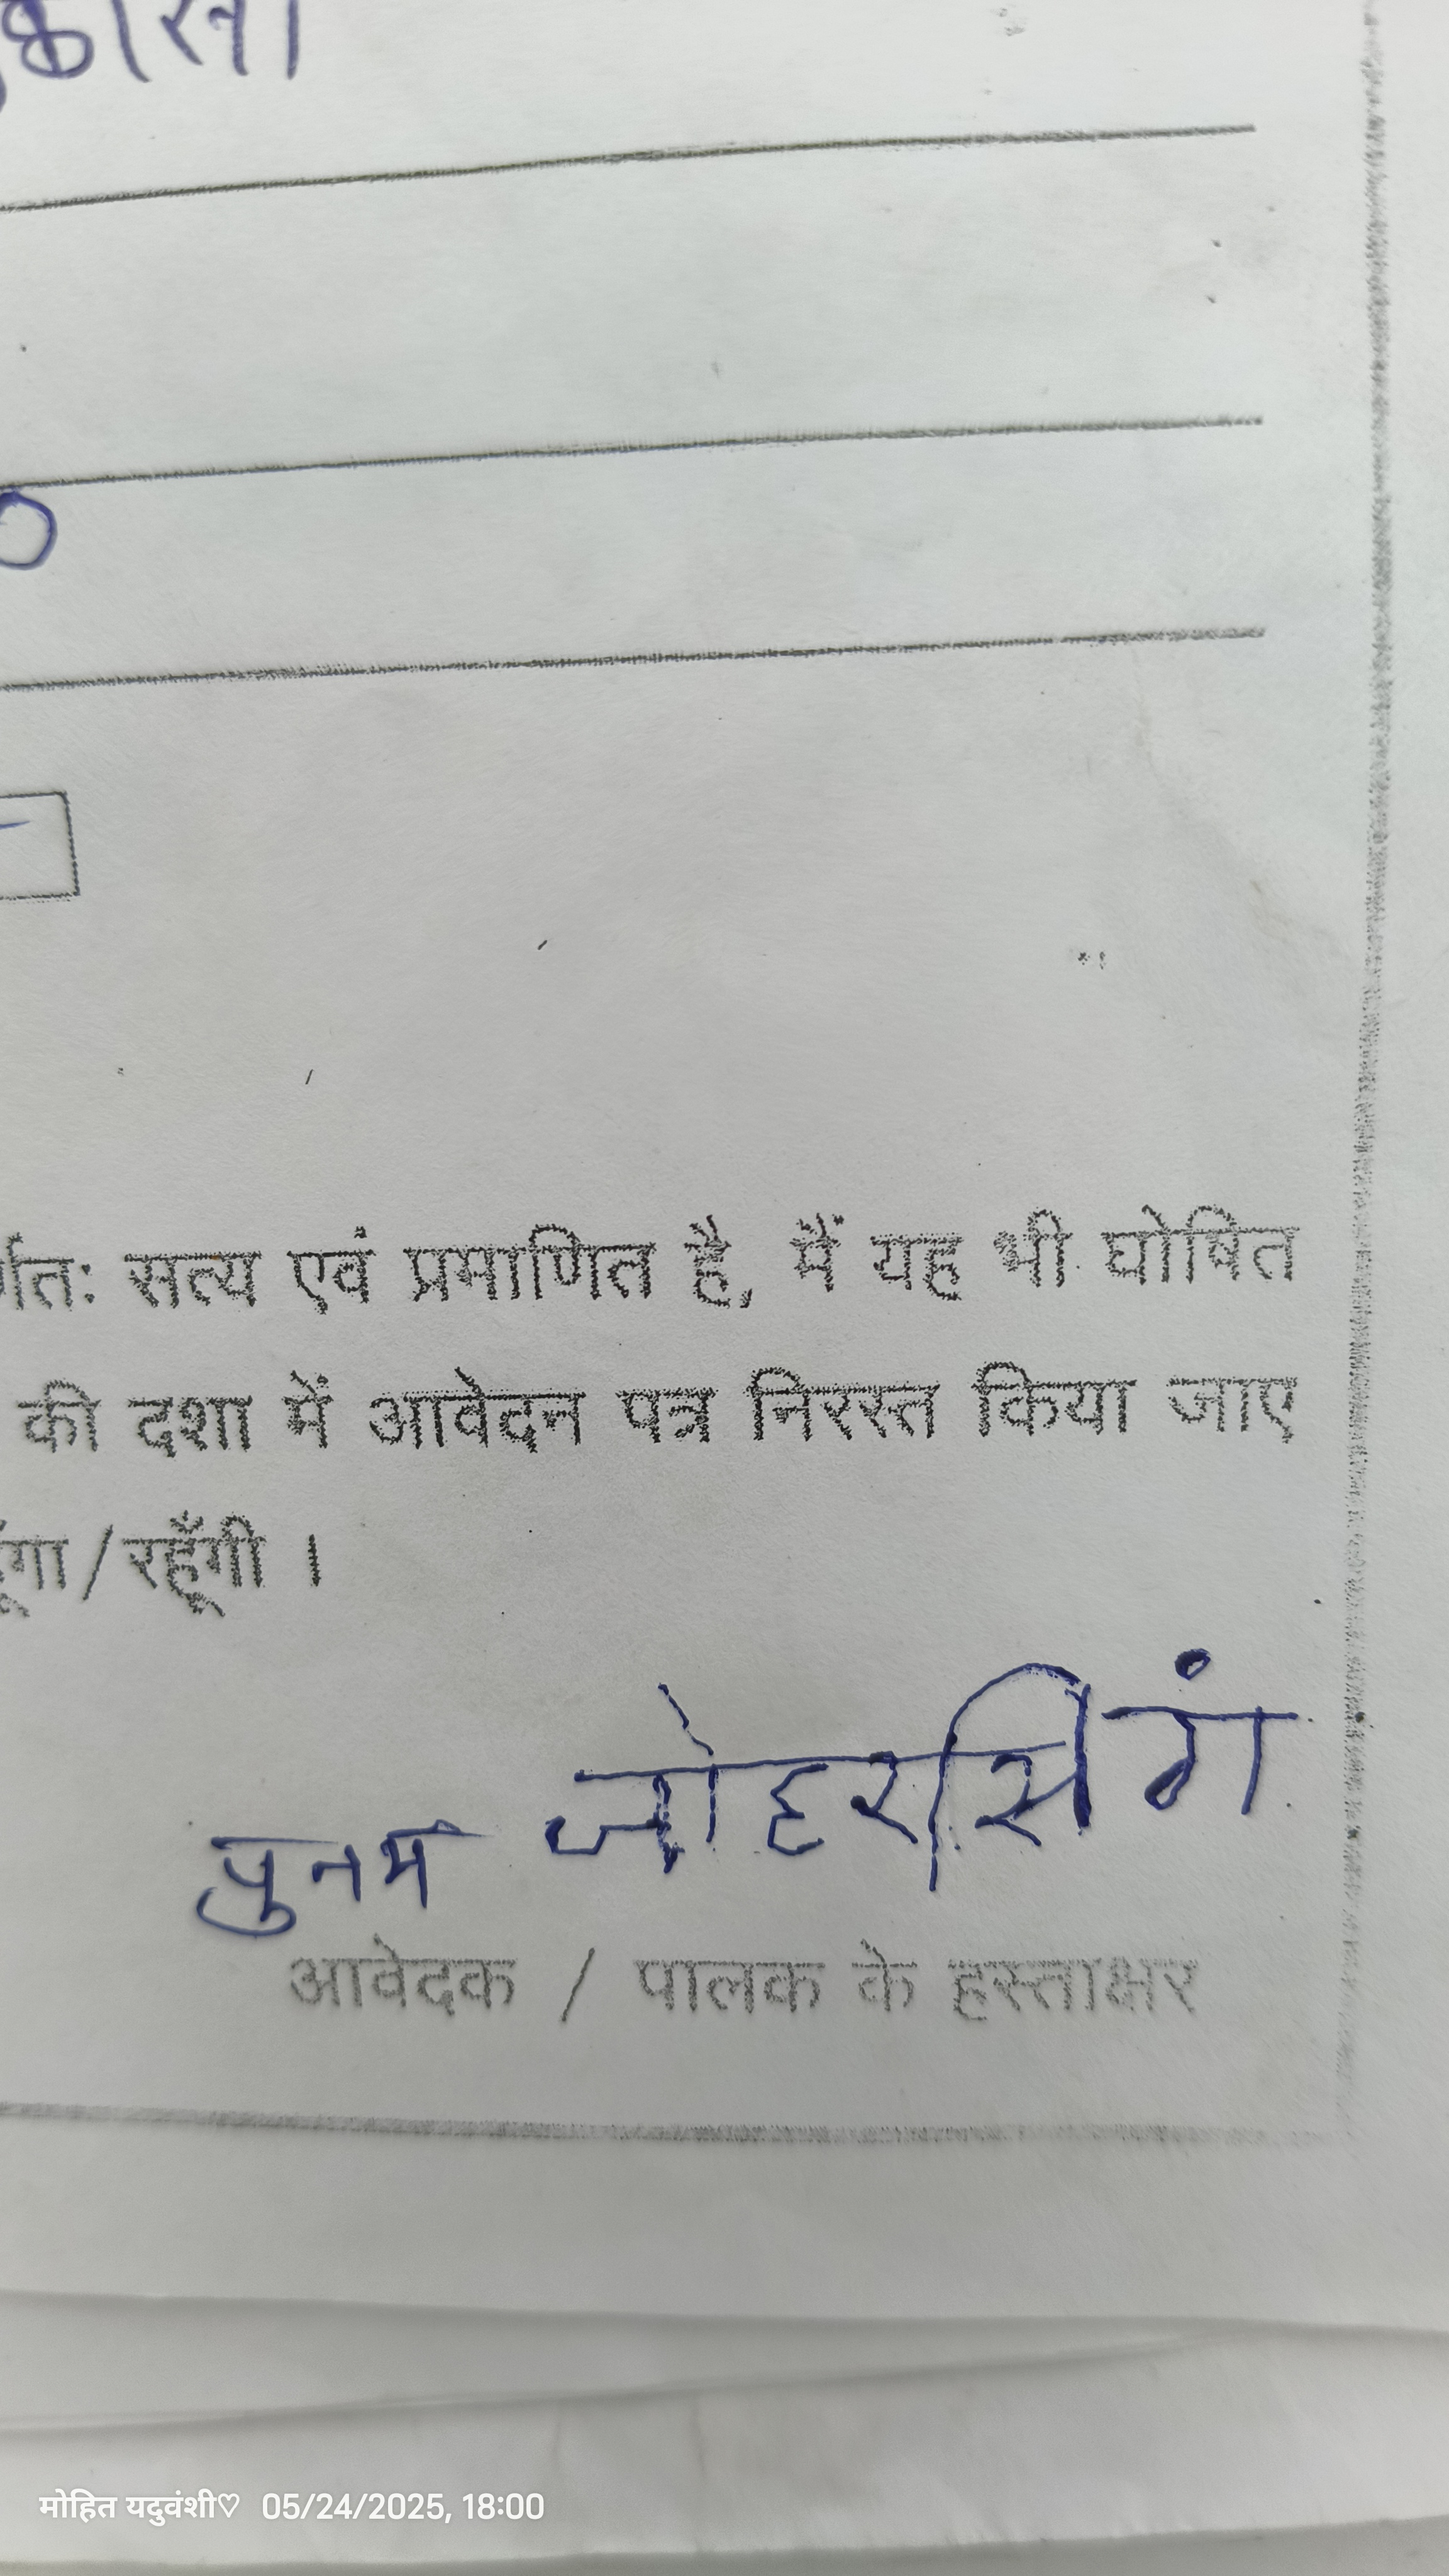 सत्य एवं प्रमाणित है, मैं यह भी घोषित
की दशा में आवेदन पत्र निरस्त किया जाए
रहूँगी ।
पुनम जोहरसिंग
आवेदक / पालक के हस्ताक्षर
मोहित यदुवंशी♡ 05/24/2025, 18:00